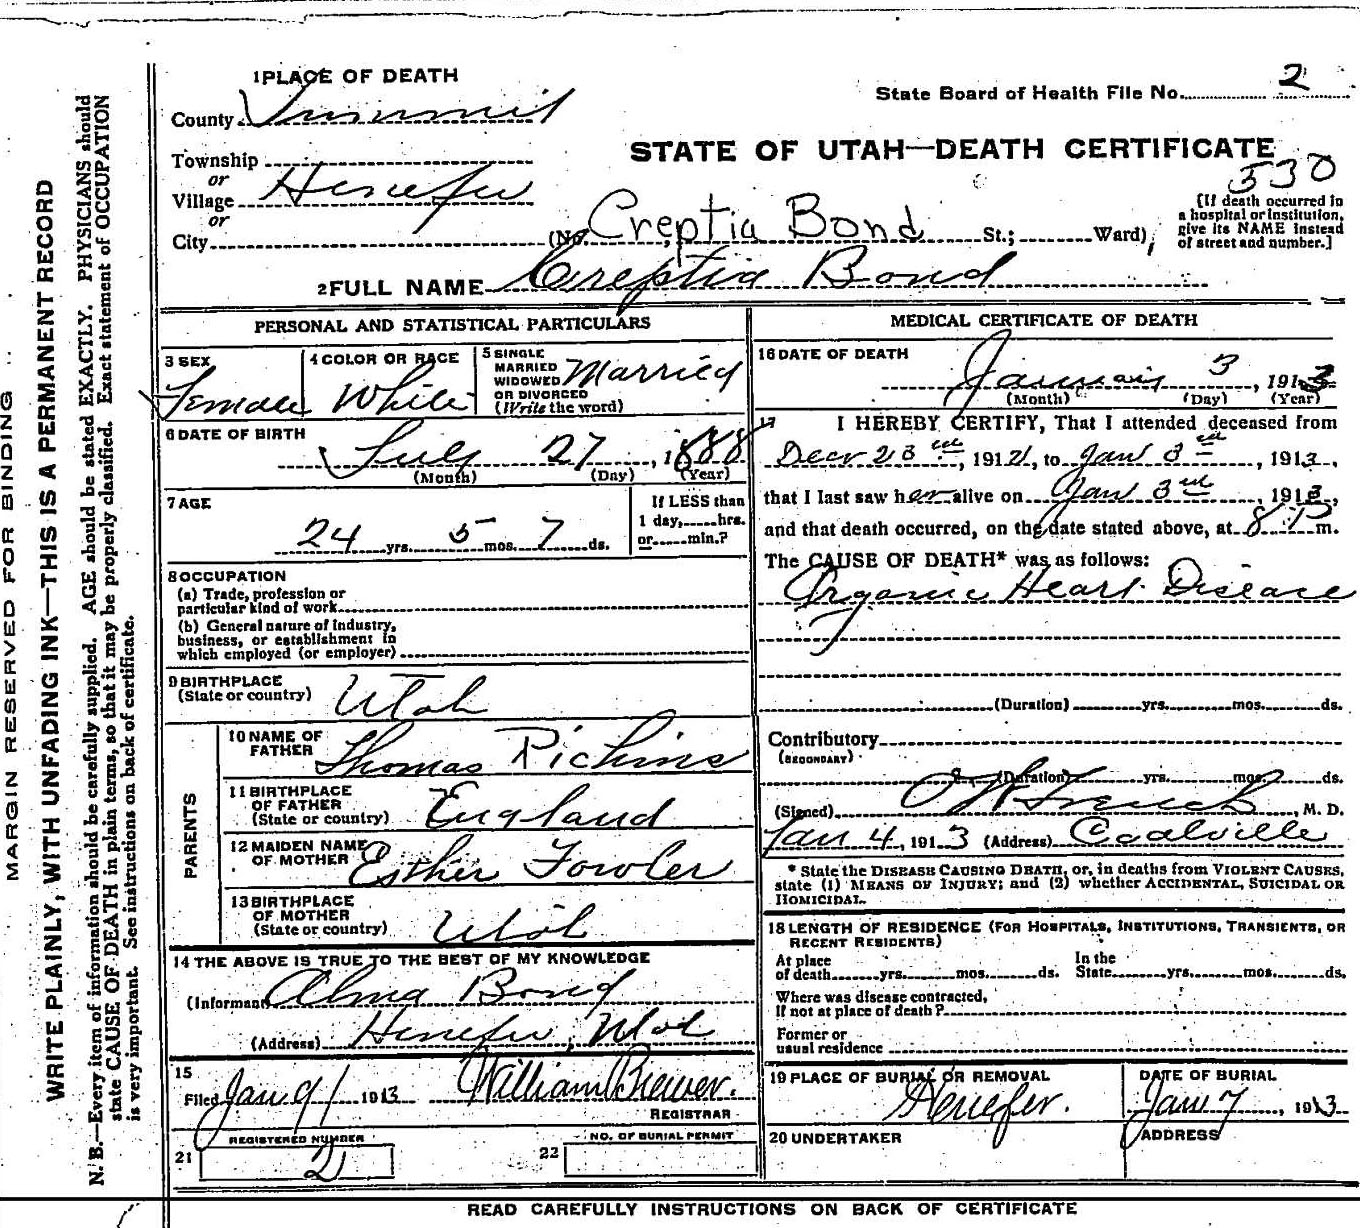 1 PLACE OF DEATH
County Summit
State Board of Health File No. 2
Township
or
Village Henefer
or
City
STATE OF UTAH—DEATH CERTIFICATE
530
[If death occurred in
a hospital or institution,
give its NAME instead
of street and number.]
(No. Creptia Bond St.; Ward)
2 FULL NAME Creptia Bond
PERSONAL AND STATISTICAL PARTICULARS
3 SEX
Female
4 COLOR OR RACE
White
5 SINGLE
MARRIED
WIDOWED
OR DIVORCED
(Write the word)
Married
6 DATE OF BIRTH
July 27, 1888
(Month) (Day) (Year)
7 AGE
24 yrs. 5 mos. 7 ds.
If LESS than
1 day, hrs.
or min.?
8 OCCUPATION
(a) Trade, profession or
particular kind of work
(b) General nature of industry,
business, or establishment in
which employed (or employer)
9 BIRTHPLACE
(State or country) Utah
PARENTS
10 NAME OF
FATHER Thomas Richins
11 BIRTHPLACE
OF FATHER
(State or country) England
12 MAIDEN NAME
OF MOTHER Esther Fowler
13 BIRTHPLACE
OF MOTHER
(State or country) Utah
14 THE ABOVE IS TRUE TO THE BEST OF MY KNOWLEDGE
(Informant Alma Bond
(Address) Henefer, Utah
15
Filed Jan 9/ 1913 William Brewer.
REGISTRAR
REGISTERED NUMBER
21 2
NO. OF BURIAL PERMIT
22
MEDICAL CERTIFICATE OF DEATH
16 DATE OF DEATH
January 3, 1913
(Month) (Day) (Year)
17 I HEREBY CERTIFY, That I attended deceased from
Decr 23rd, 1912, to Jan 3rd, 1913,
that I last saw her alive on Jan 3rd, 1913,
and that death occurred, on the date stated above, at 8 P m.
The CAUSE OF DEATH* was as follows:
Organic Heart Disease
(Duration) yrs. mos. ds.
Contributory
(SECONDARY)
(Duration) yrs. mos. ds.
(Signed) French, M. D.
Jan 4, 1913 (Address) Coalville
* State the DISEASE CAUSING DEATH, or, in deaths from VIOLENT CAUSES,
state (1) MEANS OF INJURY; and (2) whether ACCIDENTAL, SUICIDAL OR
HOMICIDAL.
18 LENGTH OF RESIDENCE (FOR HOSPITALS, INSTITUTIONS, TRANSIENTS, OR
RECENT RESIDENTS)
At place
of death yrs. mos. ds.
In the
State yrs. mos. ds.
Where was disease contracted,
If not at place of death?
Former or
usual residence
19 PLACE OF BURIAL OR REMOVAL
Henefer.
DATE OF BURIAL
Jan 7, 1913
20 UNDERTAKER
ADDRESS
READ CAREFULLY INSTRUCTIONS ON BACK OF CERTIFICATE
MARGIN RESERVED FOR BINDING
WRITE PLAINLY, WITH UNFADING INK—THIS IS A PERMANENT RECORD
N. B.—Every item of information should be carefully supplied. AGE should be stated EXACTLY. PHYSICIANS should
state CAUSE OF DEATH in plain terms, so that it may be properly classified. Exact statement of OCCUPATION
is very important. See instructions on back of certificate.